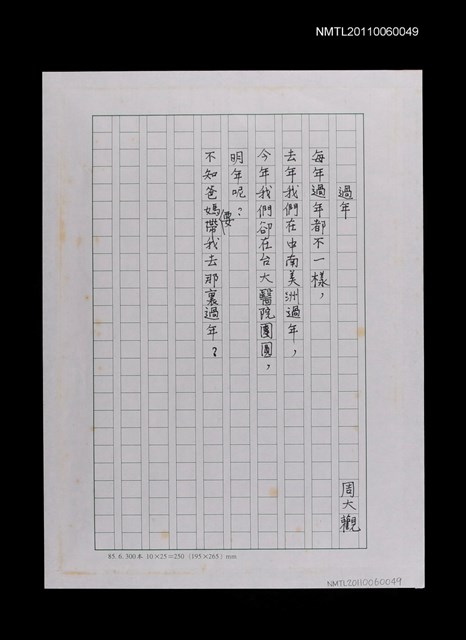 NMTL20110060049
過年
周大觀
每年過年都不一樣，
去年我們在中南美洲過年，
今年我們卻在台大醫院團圓，
明年呢？
不知爸媽要帶我去那裏過年？
85. 6. 300本 10×25=250 (195×265) mm
NMTL20110060049